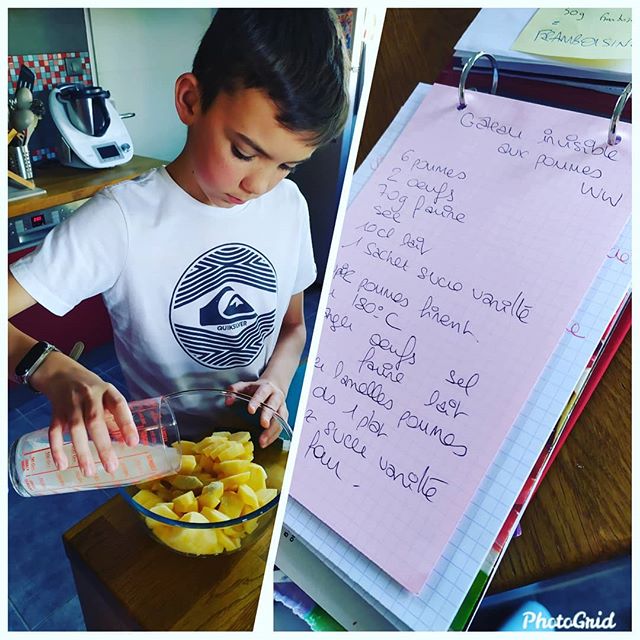 QUIKSILVER
50g
FRAMBOISINE
Gâteau invisible
aux pommes
WW
6 pommes
2 oeufs
70g farine
sel
10cl lait
1 sachet sucre vanillé
pommes finement.
180°C
oeufs sel
farine lait
lamelles pommes
1 plat
sucre vanillé
four.
PhotoGrid